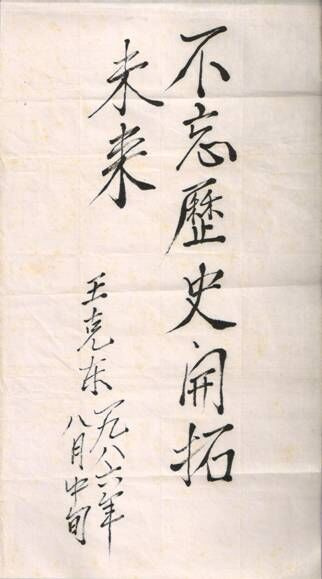 不忘歷史開拓
未来
王克东一九八六年
八月中旬